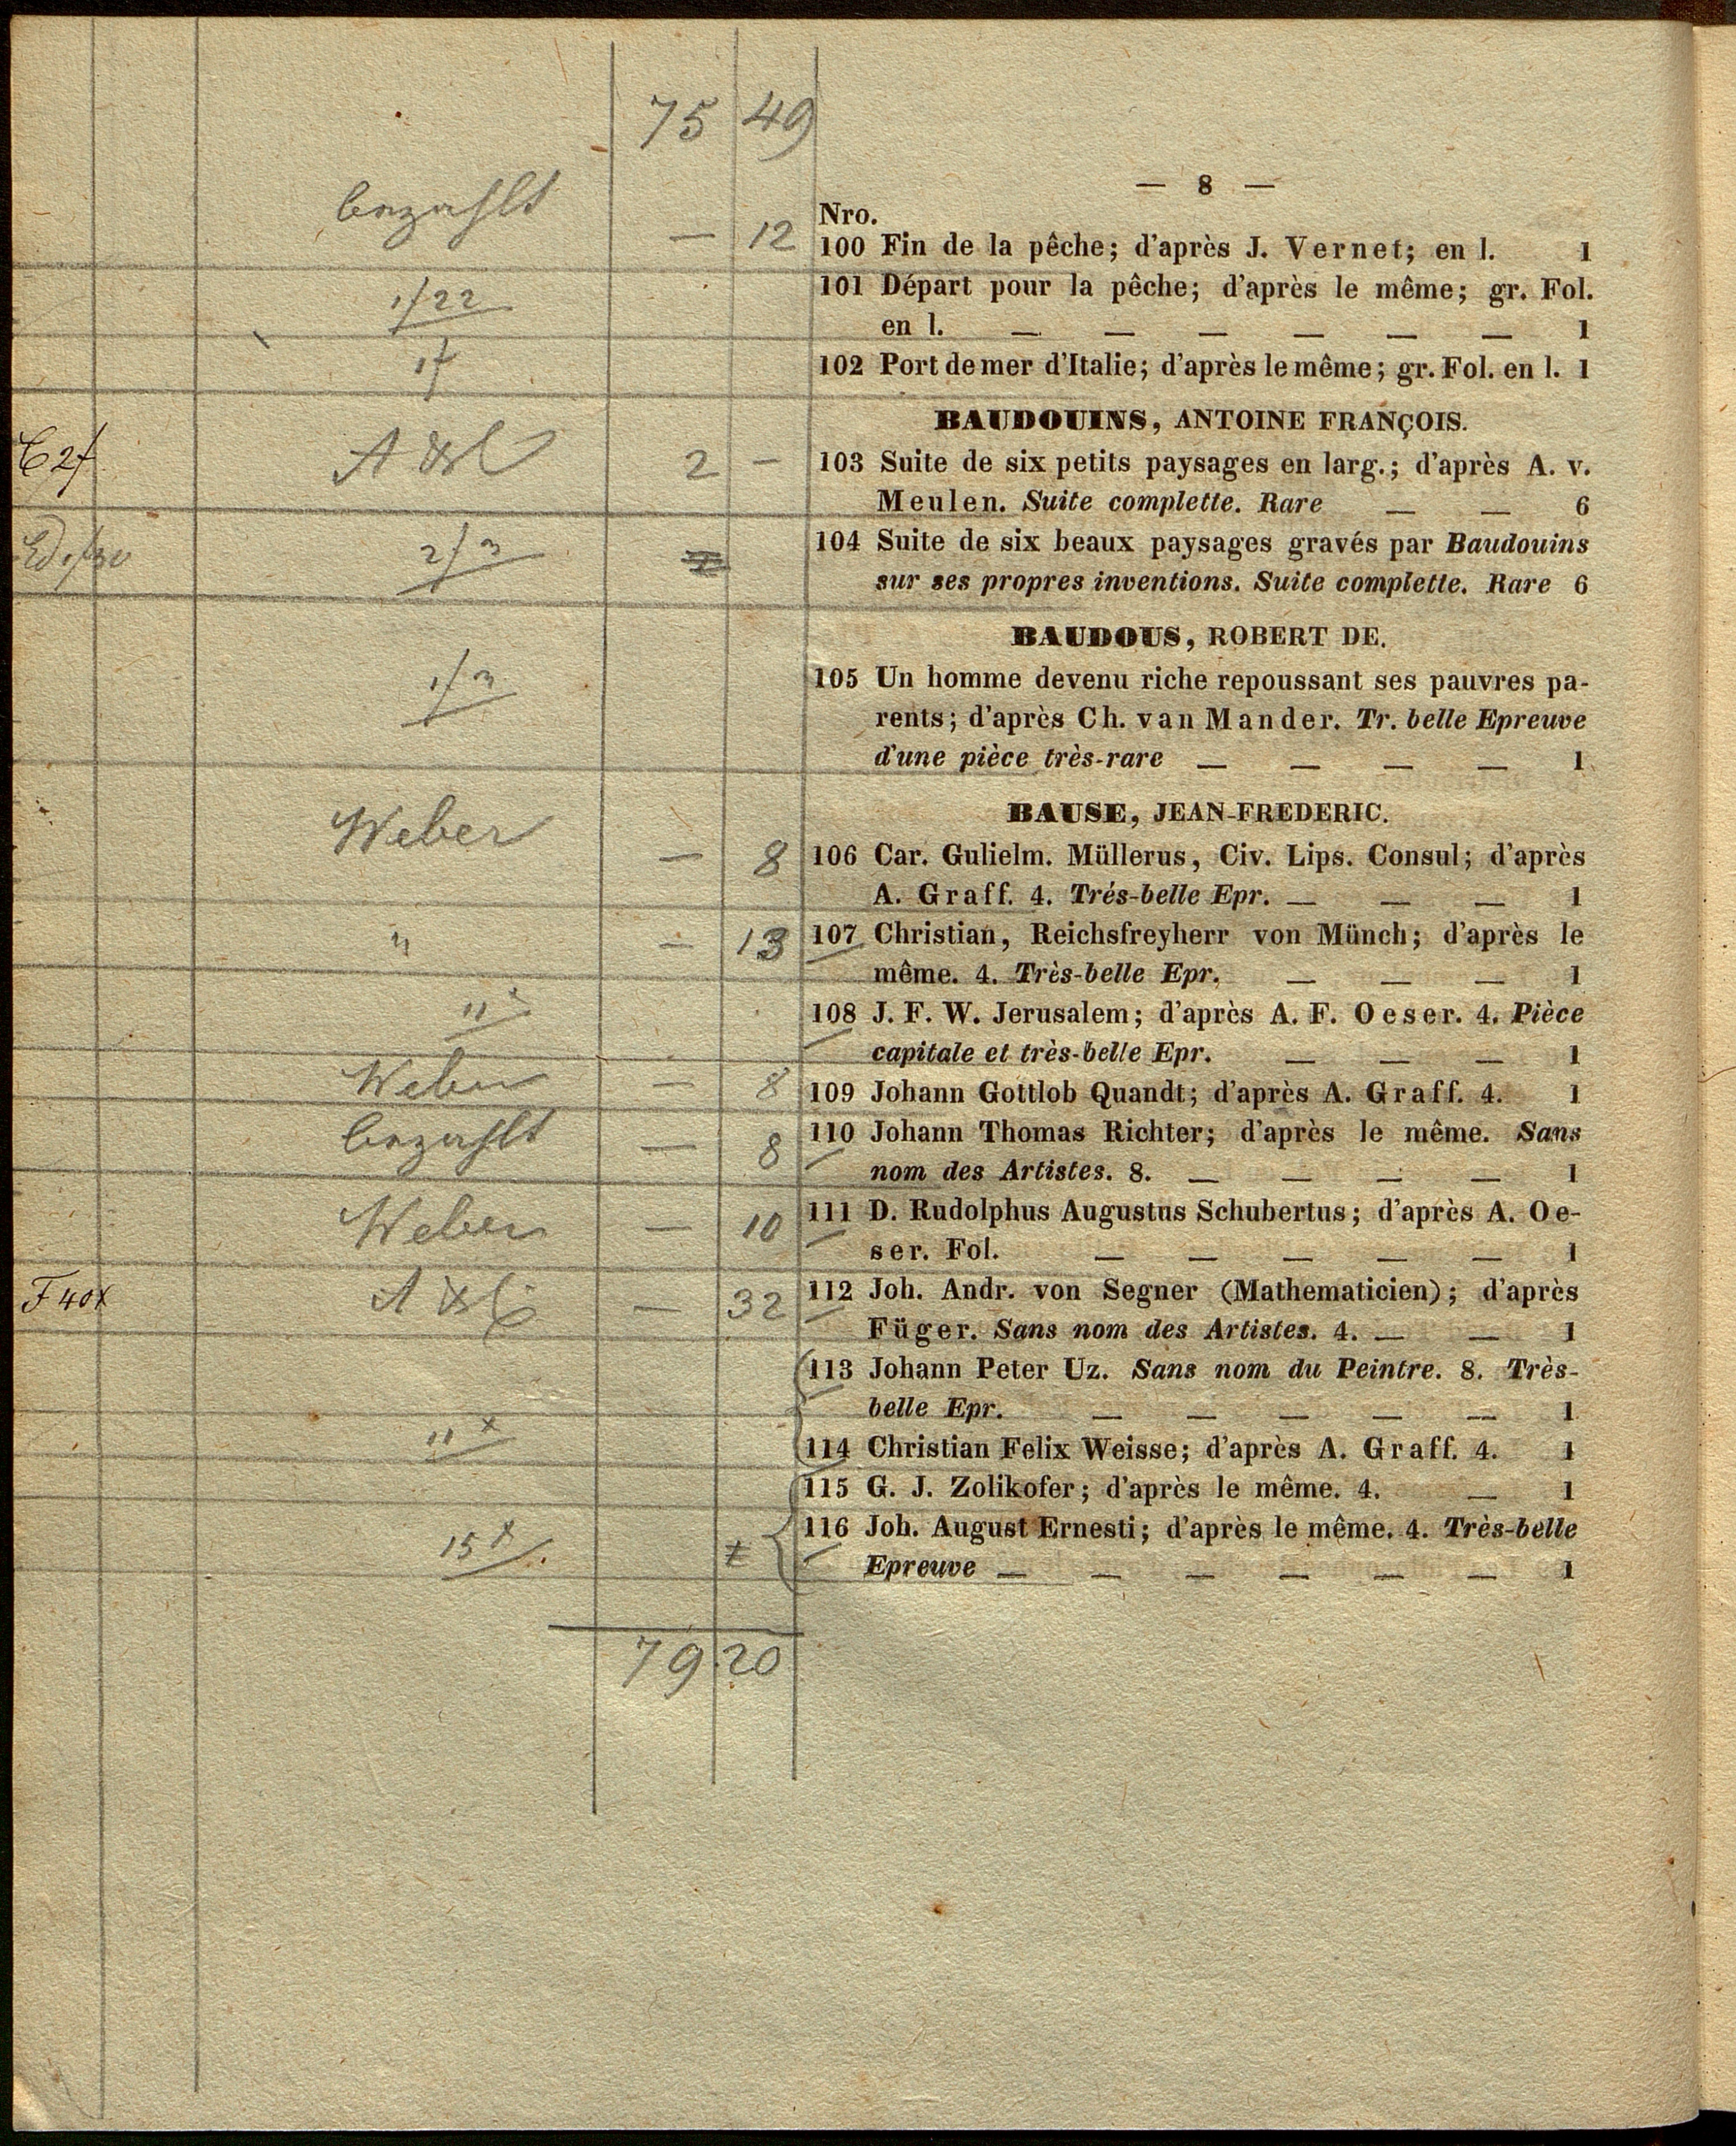 75 49
— 8 —
Nro.
bezahlt — 12 100 Fin de la pêche; d'après J. Vernet; en l. 1
1f 22 101 Départ pour la pêche; d'après le même; gr. Fol.
en l. — — — — — — 1
1f 102 Port de mer d'Italie; d'après le même; gr. Fol. en l. 1
BAUDOUINS, ANTOINE FRANÇOIS.
2f 2 — 103 Suite de six petits paysages en larg.; d'après A. v.
Meulen. Suite complette. Rare — — 6
104 Suite de six beaux paysages gravés par Baudouins
sur ses propres inventions. Suite complette. Rare 6
BAUDOUS, ROBERT DE.
105 Un homme devenu riche repoussant ses pauvres pa-
rents; d'après Ch. van Mander. Tr. belle Epreuve
d'une pièce très-rare — — — — 1
BAUSE, JEAN-FREDERIC.
Weber — 8 106 Car. Gulielm. Müllerus, Civ. Lips. Consul; d'après
A. Graff. 4. Trés-belle Epr. — — — 1
" — 13 107 Christian, Reichsfreyherr von Münch; d'après le
même. 4. Très-belle Epr. — — — 1
108 J. F. W. Jerusalem; d'après A. F. Oeser. 4. Pièce
capitale et très-belle Epr. — — — 1
Weber — 8 109 Johann Gottlob Quandt; d'après A. Graff. 4. 1
bezahlt — 8 110 Johann Thomas Richter; d'après le même. Sans
nom des Artistes. 8. — — — — 1
Weber — 10 111 D. Rudolphus Augustus Schubertus; d'après A. Oe-
ser. Fol. — — — — — 1
F 40x — 32 112 Joh. Andr. von Segner (Mathematicien); d'après
Füger. Sans nom des Artistes. 4. — — 1
113 Johann Peter Uz. Sans nom du Peintre. 8. Très-
belle Epr. — — — — — 1
11x 114 Christian Felix Weisse; d'après A. Graff. 4. 1
115 G. J. Zolikofer; d'après le même. 4. — 1
15x 116 Joh. August Ernesti; d'après le même. 4. Très-belle
Epreuve — — — — — — 1
79 20